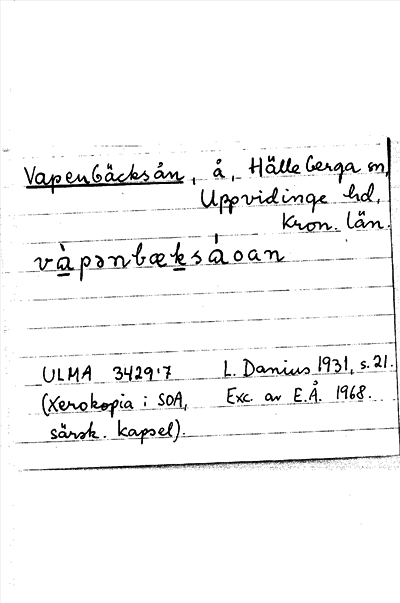 Vapenbäcksån, å, Hälleberga sn,
Uppvidinge hd,
Kron. län.
vàpənbæksåoan
ULMA 3429:7 L. Danius 1931, s. 21.
(Xerokopia i SOA, Exc. av E.Å. 1968.
särsk. kapsel).